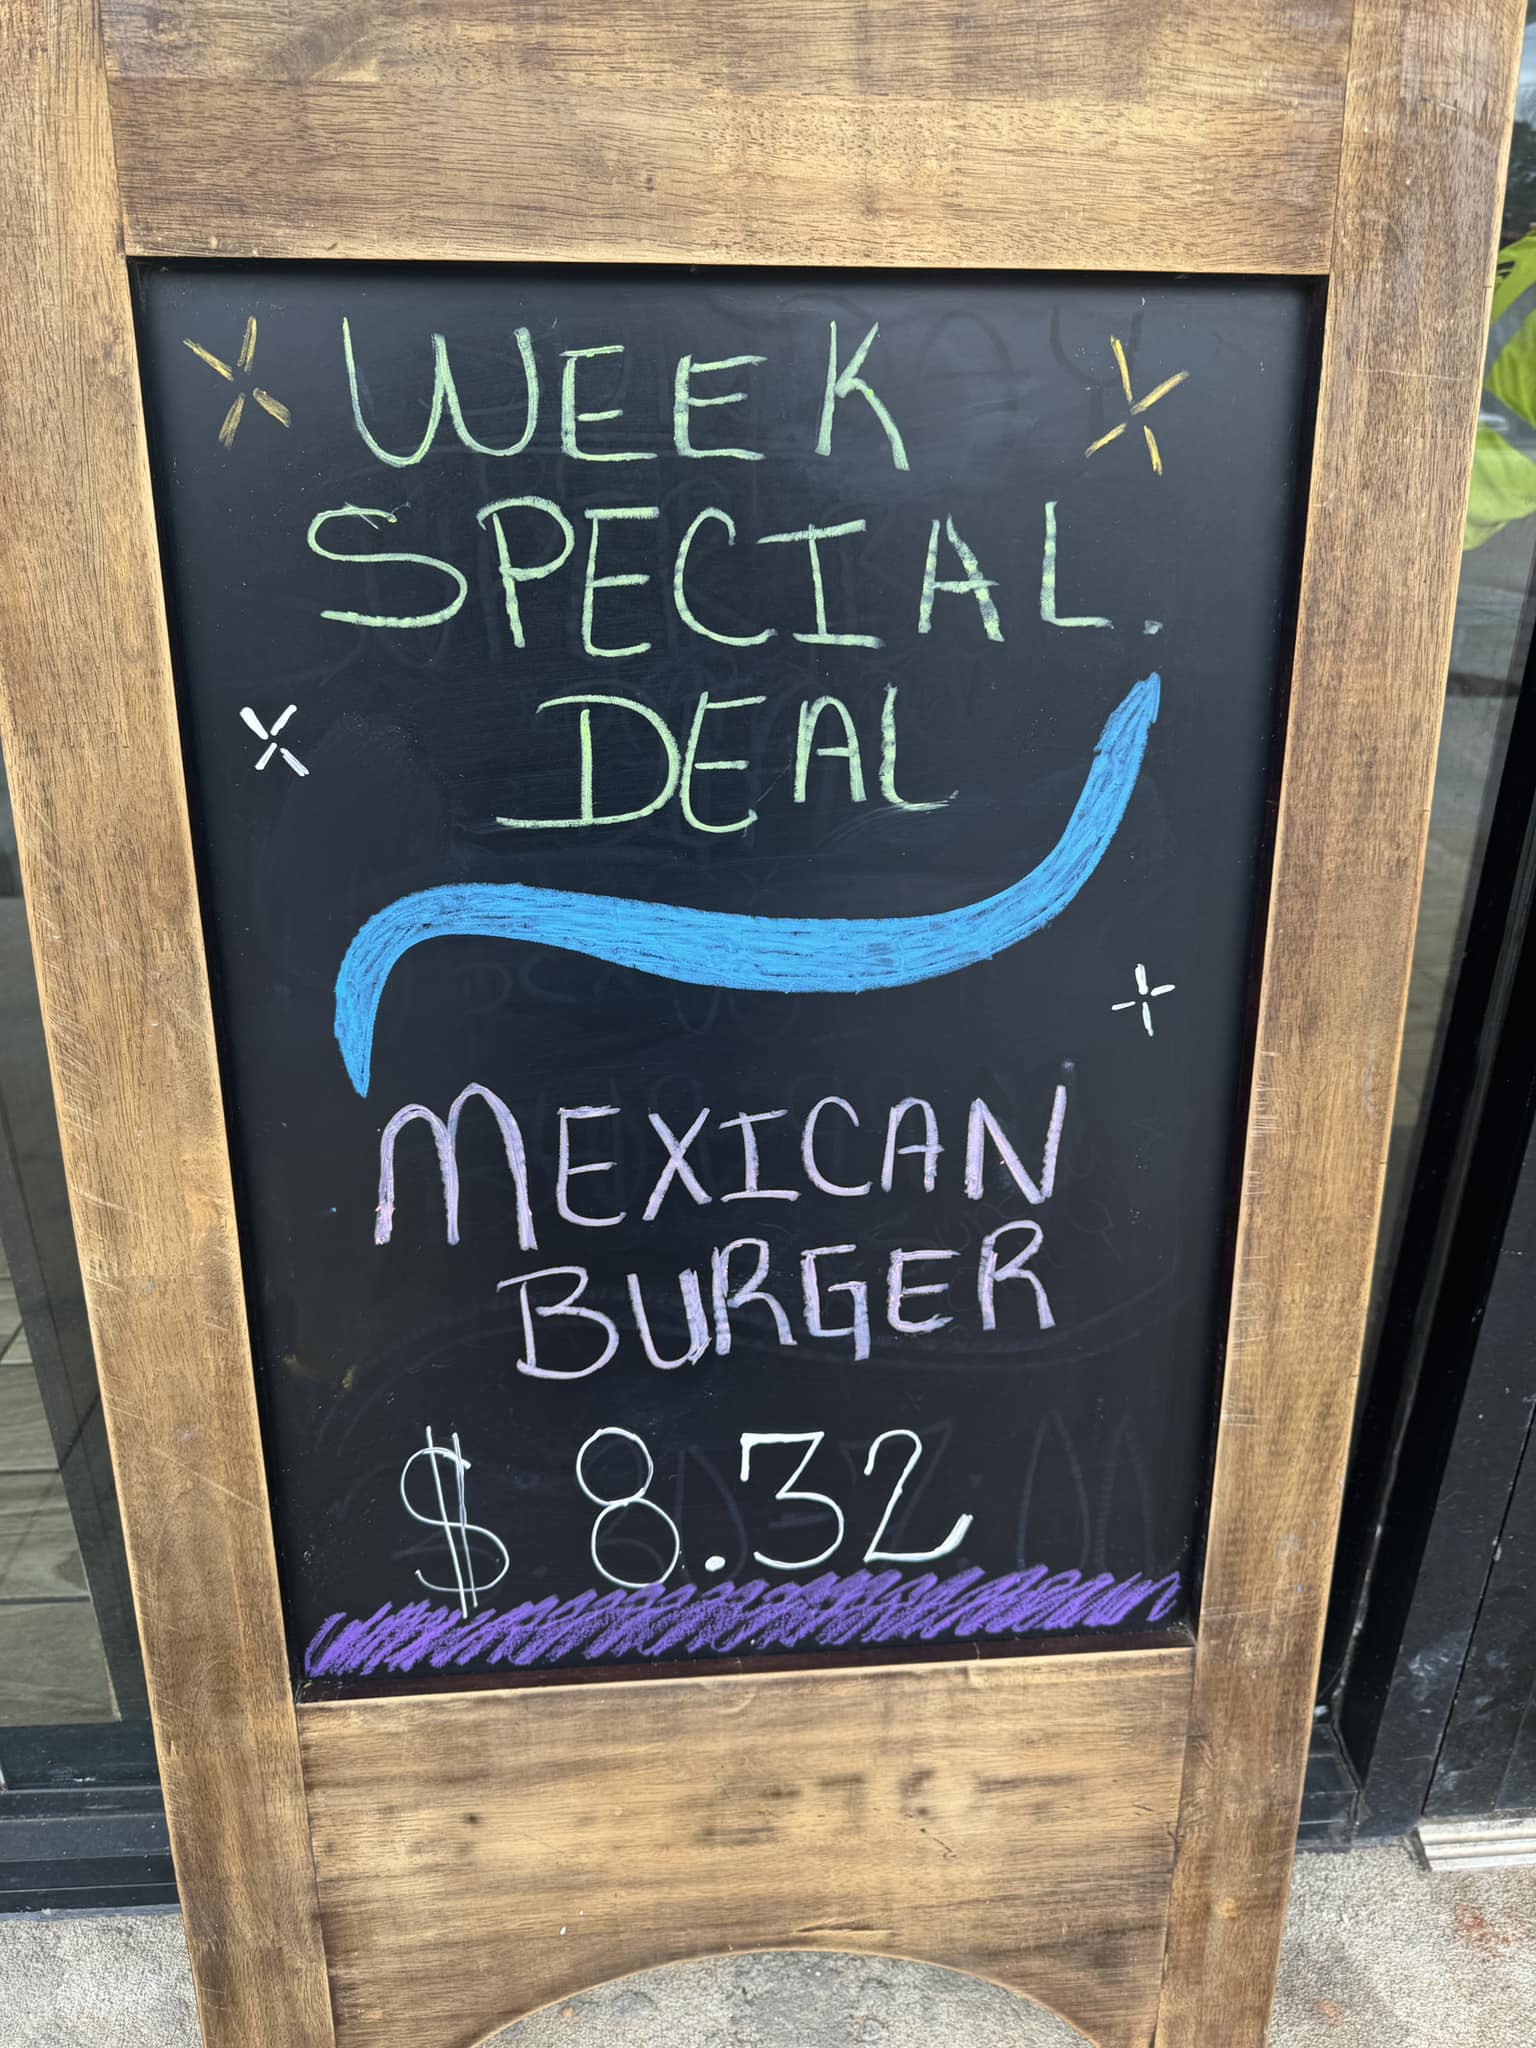 WEEK
SPECIAL.
DEAL
MEXICAN
BURGER
$ 8.32